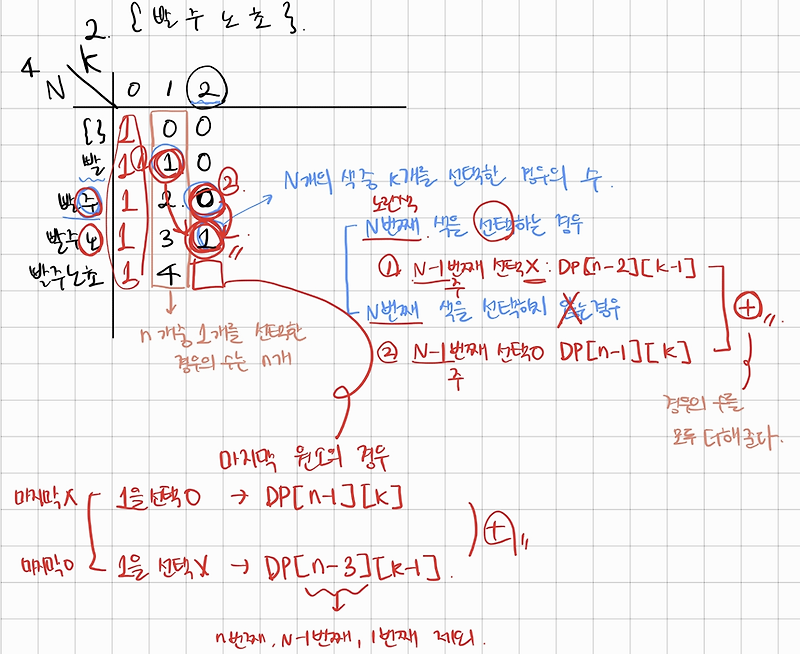 2. {빨주노초}.
4
N K 0 1 2
{} 1 0 0
빨 1 ① 1 0
빨주 1 2 0 ②
빨주노 1 3 1 "
빨주노초 1 4
N개의 색 중 K개를 선택한 경우의 수
노란색
N번째 색을 선택하는 경우
① N-1번째 선택X : DP[n-2][k-1]
주
N번째 색을 선택하지 않는경우
② N-1번째 선택O DP[n-1][k]
주
+ "
경우의 수를
모두 더해준다.
n개중 1개를 선택한
경우의수는 n개
마지막 원소의 경우
마지막X 1을 선택O → DP[n-1][k]
+ "
마지막O 1을 선택X → DP[n-3][k-1].
n번째, N-1번째, 1번째 제외.